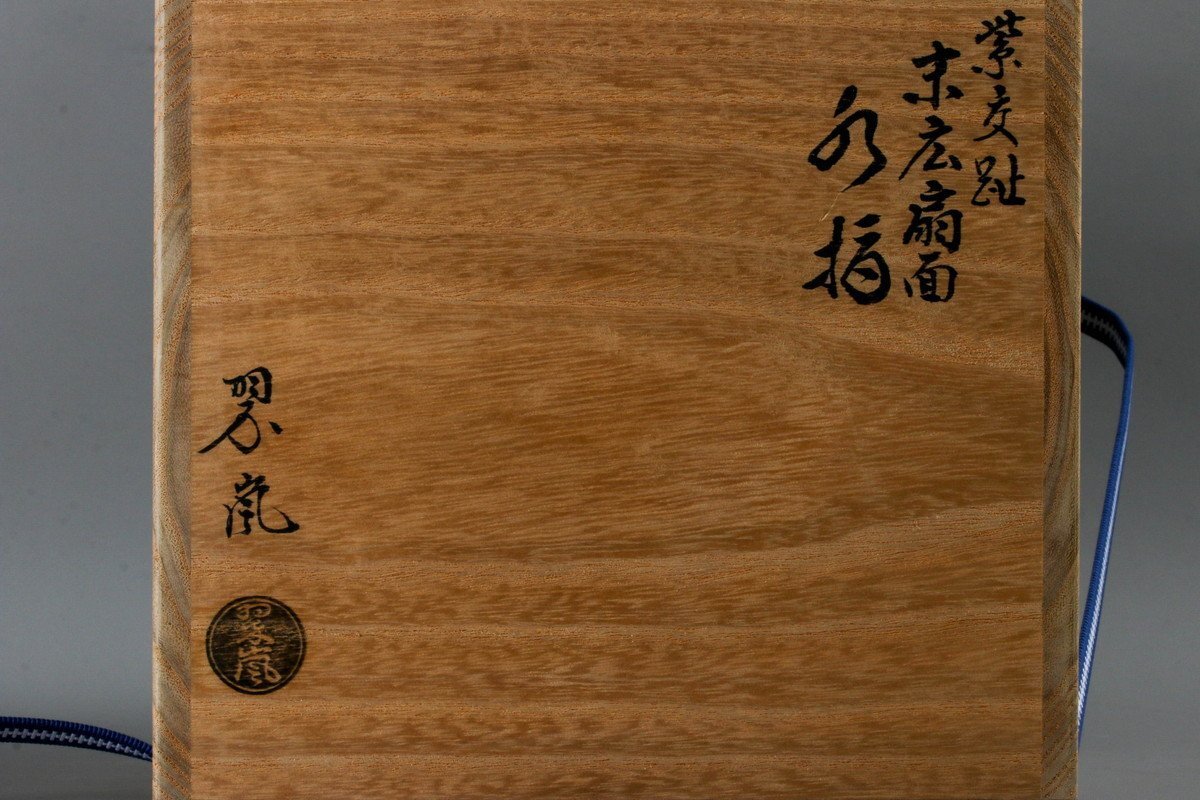 紫交趾
末広扇面
水指
翠嵐
翠嵐